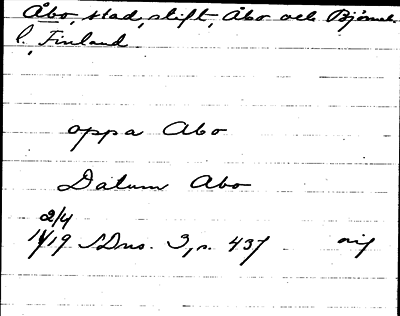 Åbo, stad, stift, Åbo och Björneb.
l., Finland
oppa Abo
Datum Abo
2/4
1419 SDns. 3, s. 437 orig